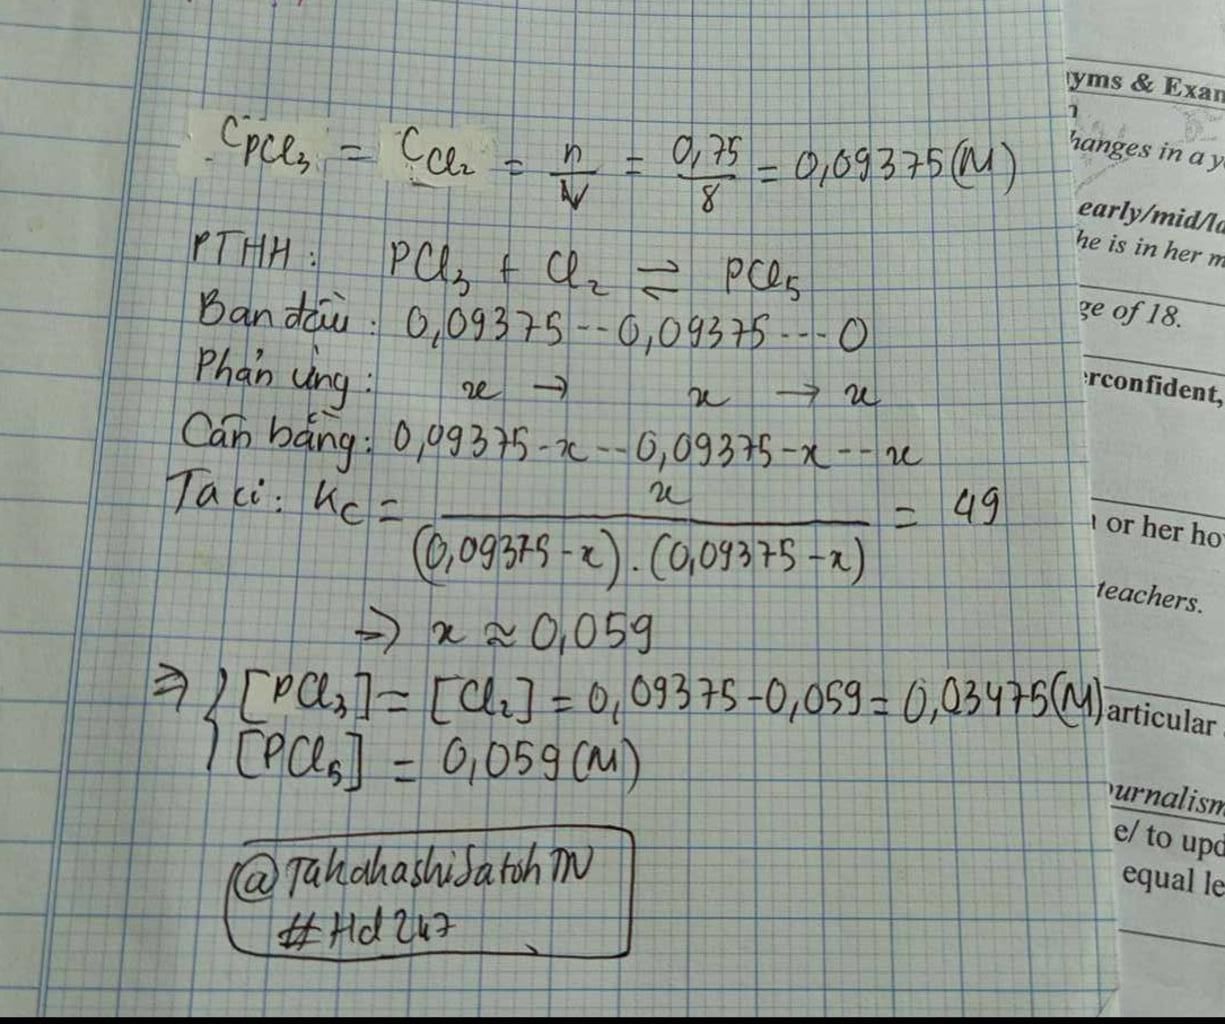 C PCl₃ = C Cl₂ = n/V = 0,75/8 = 0,09375 (M)
PTHH: PCl₃ + Cl₂ ⇌ PCl₅
Ban đầu: 0,09375 -- 0,09375 --- 0
Phản ứng: x → x → x
Cân bằng: 0,09375-x -- 0,09375-x -- x
Ta có: Kc = x/((0,09375-x).(0,09375-x)) = 49
=> x ≈ 0,059
=> { [PCl₃] = [Cl₂] = 0,09375-0,059 = 0,03475 (M)
[PCl₅] = 0,059 (M)
@TakahashiSatohTN
#Hd247
yms & Exan
hanges in a y
early/mid/la
he is in her m
ge of 18.
rconfident,
or her ho
teachers.
articular
urnalism
e/ to upd
equal le